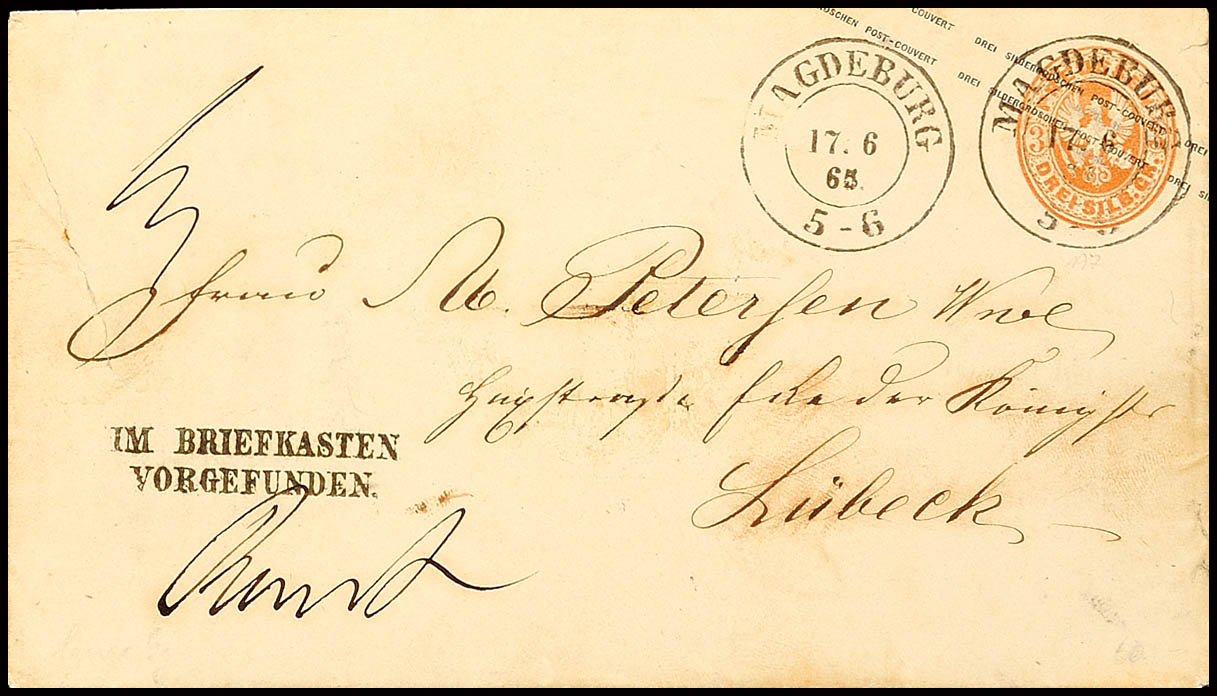 DREI SILBERGROSCHEN POST-COUVERT DREI SILBERGROSCHEN POST-COUVERT DREI
DREI SILBERGROSCHEN POST-COUVERT DREI SIL
MAGDEBURG
17. 6
65.
5-6
MAGDEBURG
17. 6
3
DREI SILB. GR.
Frau M. Petersen Wwe
Hüxstraße Ecke der Königstr
Lübeck
IM BRIEFKASTEN
VORGEFUNDEN.